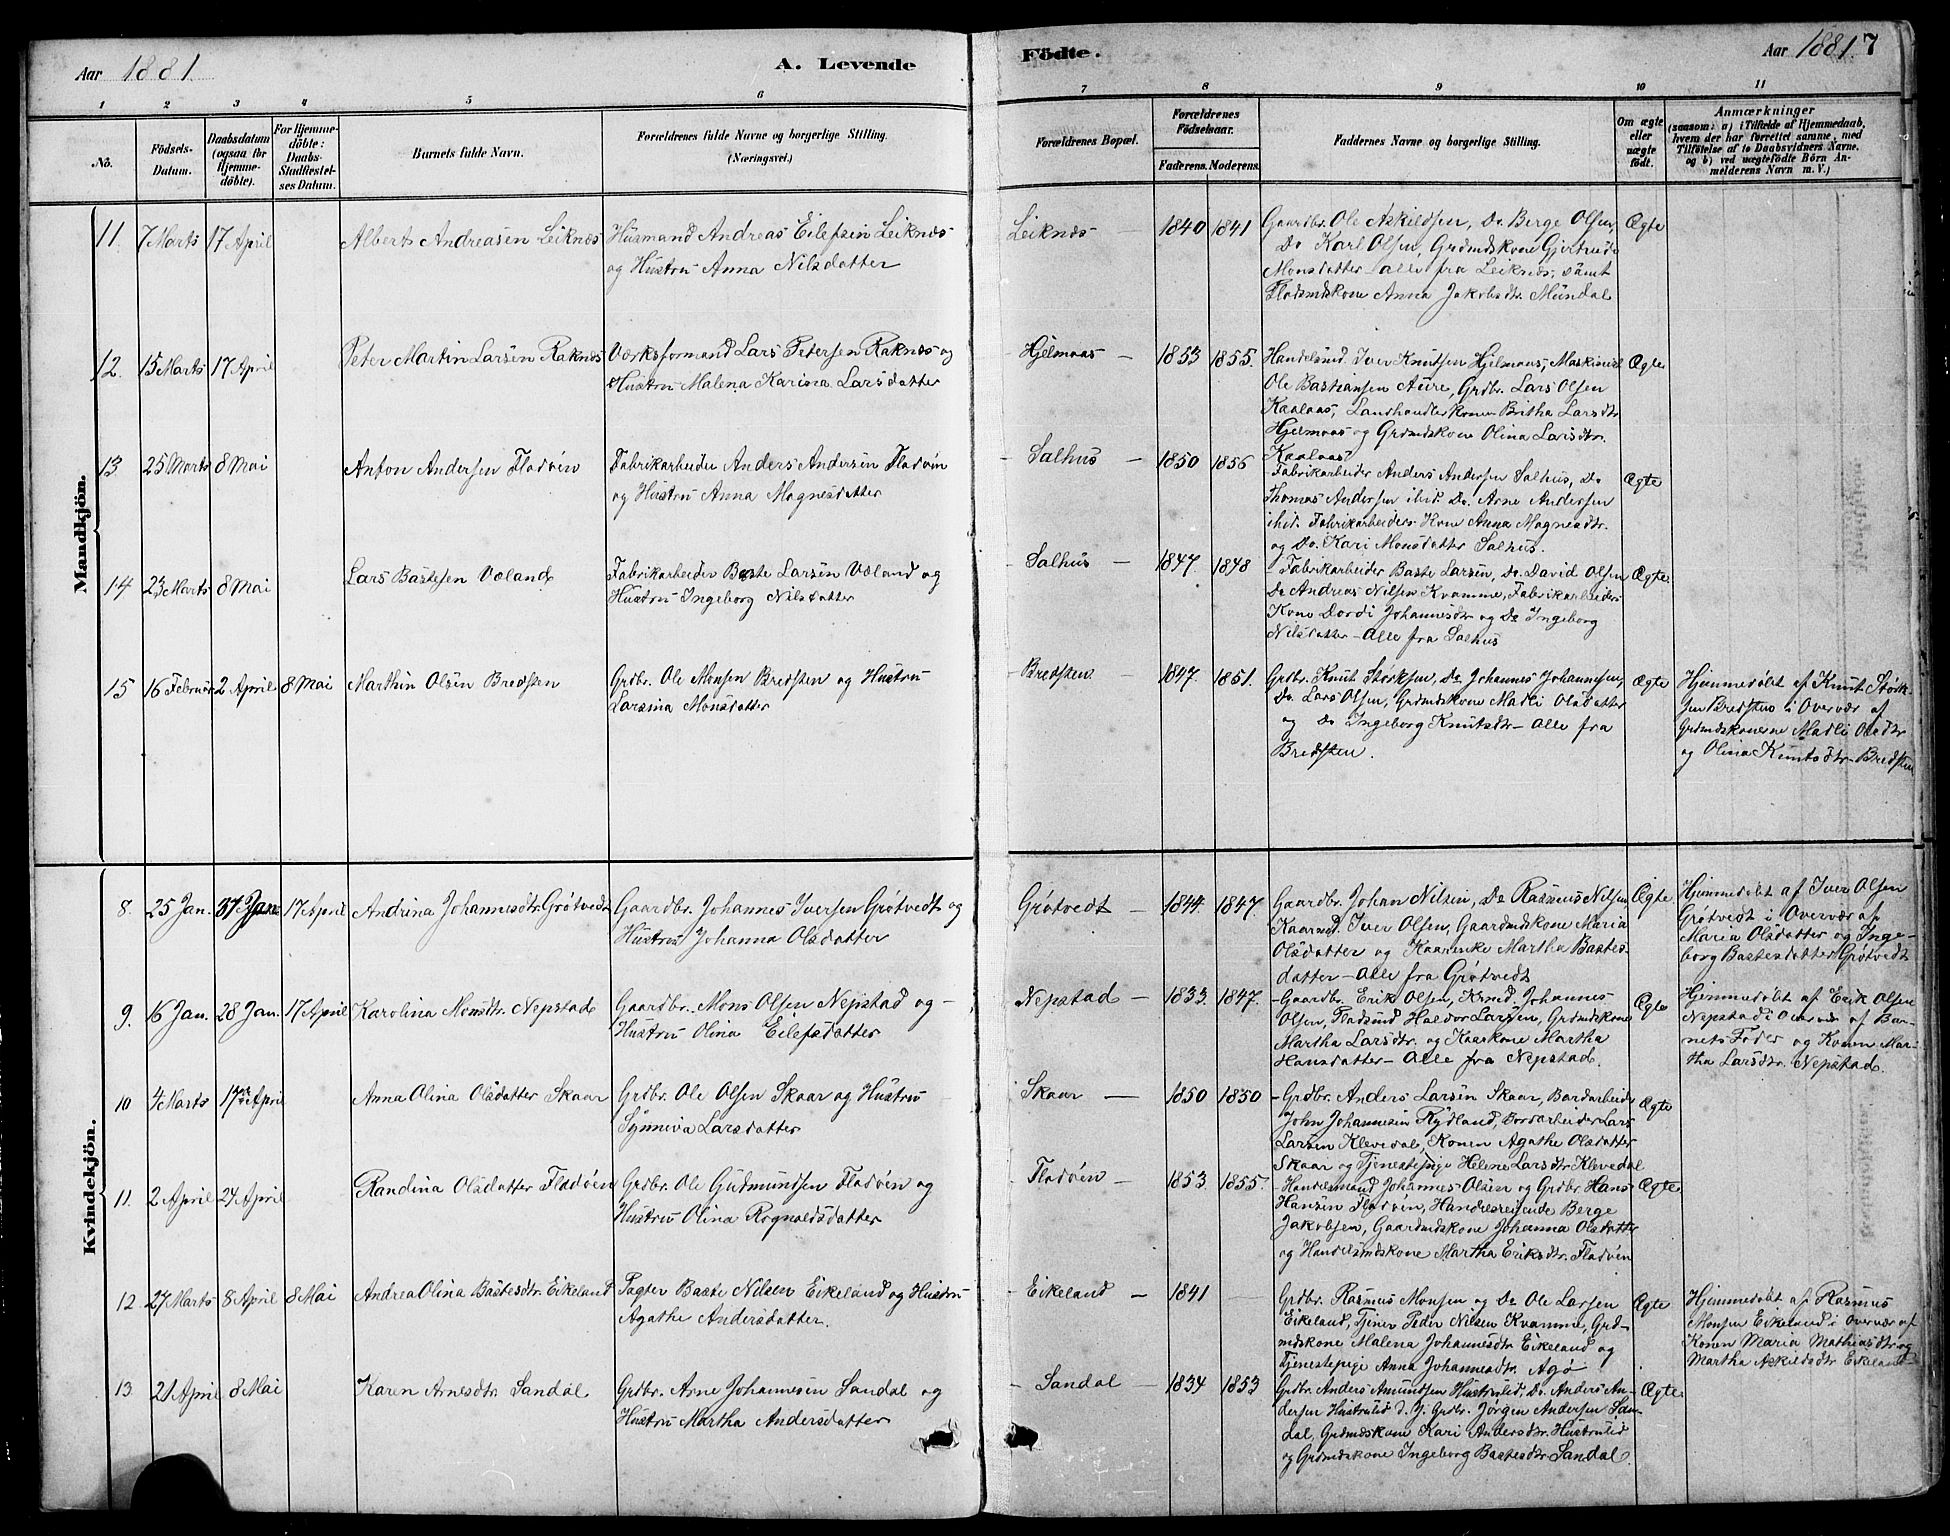 Aar 1881
A. Levende
Födte.
Aar 1881. 7
1 2 3 4 5 6 7 8 9 10 11
No.
Födsels-
Datum.
Daabsdatum
(ogsaa for
Hjemme-
döbte).
For Hjemme-
döbte:
Daabs-
Stadfæstel-
ses Datum.
Barnets fulde Navn.
Forældrenes fulde Navne og borgerlige Stilling.
(Næringsvei.)
Forældrenes Bopæl.
Forældrenes
Födselsaar.
Faderens. Moderens.
Faddernes Navne og borgerlige Stilling.
Om ægte
eller
uægte
födt.
Anmærkninger
(saasom: a) i Tilfælde af Hjemmedaab,
hvem der har forrettet samme, med
Tilföielse af to Daabsvidners Navne,
og b) ved uægtefödte Börn An-
melderens Navn m. V.)
Mandkjön.
11. 7 Marts 17 April
Albert Andreasen Leiknes
Husmand Andreas Eilefsen Leiknes
og Hustru Anna Nilsdatter
Leiknes 1840 1841
Gaardbr. Ole Askildsen, Do. Berge Olsen,
Do Karl Olsen, Grdmdskone Gjertrude
Monsdatter - alle fra Leiknes, samt
Pladsmdskone Anna Jakobsdtr. Mundal
Ægte
12. 15 Marts 17 April
Peter Martin Larsen Raknes
Værksformand Lars Petersen Raknes og
Hustru Malena Karina Larsdatter
Hjelmaas 1853 1855.
Handelsmd. Iver Knutsen Hjelmaas, Maskinist
Ole Bastiansen Aure, Grdbr. Lars Olsen
Kaalaas, Landhandlerkonen Britha Larsdtr
Hjelmaas og Grdmdskone Olina Larsdtr.
Kaalaas
Ægte
13. 25 Marts 8 Mai
Anton Andersen Fladvin
Fabrikarbeider Anders Andersen Fladvin
og Hustru Anna Magnesdatter
Salhus 1850 1856
Fabrikarbeider Anders Andersen Salhus, Do
Thomas Andersen ibid. Do. Arne Andersen
ibid. Fabrikarbeiders Kone Anna Magnesdtr.
og Do. Kari Monsdatter Salhus.
Ægte
14 23 Marts 8 Mai
Lars Bastesen Væland
Fabrikarbeider Baste Larsen Væland og
Hustru Ingeborg Nilsdatter
Salhus 1847. 1848
Fabrikarbeider Baste Larsen, Do. David Olsen
Do Andreas Nilsen Kvamme, Fabrikarbeiders
Kone Dordi Johannesdtr og Do Ingeborg
Nilsdatter - Alle fra Salhus
Ægte
15 16 Februar 2 April 8 Mai
Marthin Olsen Bredsten
Grdbr. Ole Monsen Bredsten og Hustru
Larsina Monsdatter
Bredsten 1847. 1851.
Grdbr. Knut Störksen, Do Johannes Johannesen,
Do. Lars Olsen, Grdmdskone Madli Olsdatter
og Do Ingeborg Knutsdtr - Alle fra
Bredsten.
Ægte
Hjemmedöbt af Knut Störk-
sen Bredsten i Overvær af
Grdmdskonerne Madli Olsdtr
og Olina Knutsdtr - Bredsten
Kvindekjön.
8. 25 Jan. 31 Jan. 17 April
Andrina Johannesdtr Grøtvedt
Gaardbr. Johannes Iversen Grøtvedt og
Hustru Johanna Olsdatter
Grøtvedt 1844. 1847.
Gaardbr. Johan Nilsen, Do Rasmus Nilsen
Kaarmd. Iver Olsen, Gaardmdskone Maria
Olsdatter og Kaarenke Martha Bastes-
datter - Alle fra Grøtvedt
Ægte
Hjemmedøbt af Iver Olsen
Grøtvedt i Overvær af
Maria Olsdatter og Inge-
borg Bastesdatter Grøtvedt
9. 16 Jan. 28 Jan. 17 April
Karolina Monsdtr Nepstad
Gaardbr. Mons Olsen Nepstad og
Hustru Olina Eilefsdatter
Nepstad 1833. 1847.
Gaardbr. Erik Olsen, Krmd. Johannes
Olsen, Pladsmd Haldor Larsen, Grdmdskone
Martha Larsdtr. og Kaarkone Martha
Hansdatter - Alle fra Nepstad.
Ægte
Hjemmedøbt af Erik Olsen
Nepstad i Overvær af Bar-
nets Fader og Konen Mar-
tha Larsdtr. Nepstad.
10 4 Marts 17 April
Anna Olina Olsdatter Skaar
Grdbr. Ole Olsen Skaar og Hustru
Synneva Larsdatter
Skaar 1850 1850
Grdbr. Anders Larsen Skaar, Bordarbeider
John Johannesen Rydland, Bordarbeider Lars
Larsen Klevedal, Konen Agathe Olsdatter
Skaar og Tjenestepige Helene Larsdtr Klevedal
Ægte
11. 2 April 24 April
Randina Olsdatter Fladvin
Grdbr. Ole Gudmundsen Fladvin og
Hustru Olina Rognaldsdatter
Fladvin 1853. 1855.
Handelsmand Johannes Olsen og Grdbr Hans
Hansen Fladvin, Handelsreisende Berge
Jakobsen, Gaardmdskone Johanna Olsdatter
og Handelsmdskone Martha Eriksdtr. Fladvin
Ægte
12 27 Marts 8 April 8 Mai
Andrea Olina Bastesdtr. Eikeland
Pagter Baste Nilsen Eikeland og Hustru
Agathe Andersdatter.
Eikeland 1841
Grdbr. Rasmus Monsen og Do Ole Larsen
Eikeland, Tjener Peder Nilsen Kvamme, Grd-
mdskone Malena Johannesdtr Eikeland og
Tjenestepige Anna Johannesdtr. Agø
Ægte
Hjemmedøbt af Rasmus
Monsen Eikeland i Overvær af
Konen Maria Mathiasdtr og
Martha Askildsdtr Eikeland
13 21 April 8 Mai
Karen Arnesdtr. Sandal
Grdbr. Arne Johannesen Sandal og
Hustru Martha Andersdatter
Sandal 1834 1853
Grdbr. Anders Amundsen Hustrulid, Do. Anders An-
dersen Hustrulid d. Y. Grdbr. Jörgen Andersen San-
dal, Grdmdskone Kari Andersdtr. Hustrulid
og Grdmdskone Ingeborg Bastesdtr Sandal.
Ægte